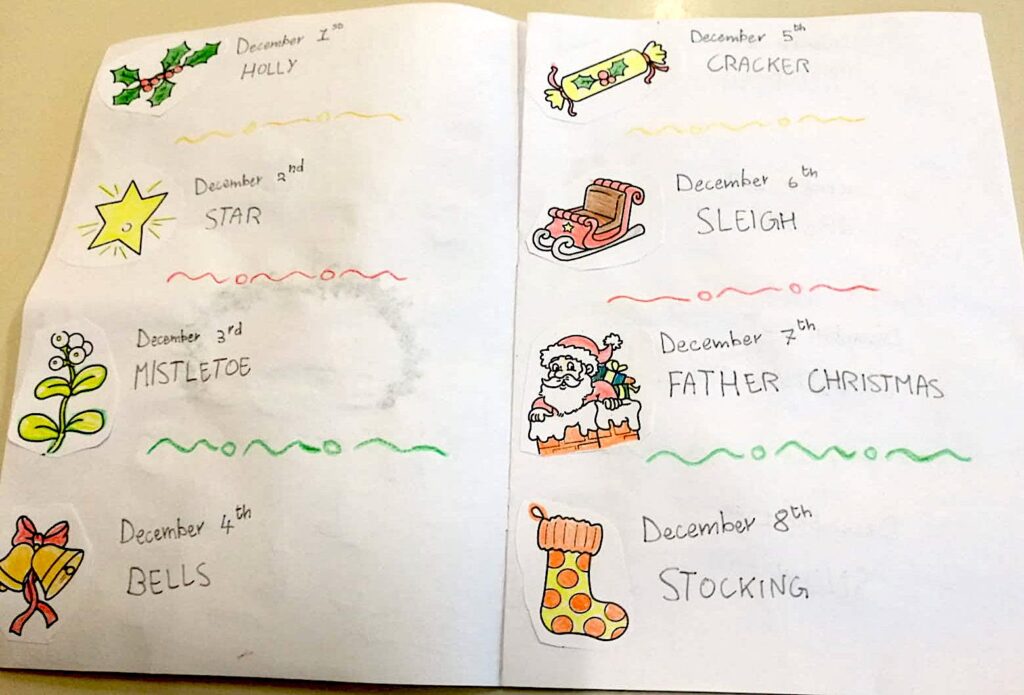 December 1st
HOLLY
December 2nd
STAR
December 3rd
MISTLETOE
December 4th
BELLS
December 5th
CRACKER
December 6th
SLEIGH
December 7th
FATHER CHRISTMAS
December 8th
STOCKING